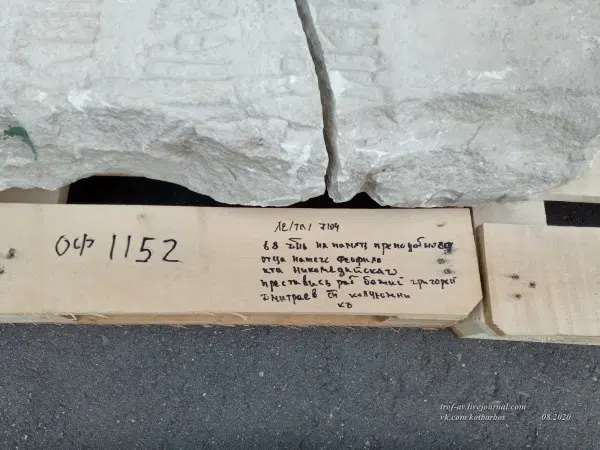 ОФ 1152
лета 7109
в 8 на память преподобнаго
отца нашего Феофила
Никомедийскаго
преставись раб божий григорей
дмитриев
trof-av.livejournal.com
vk.com/kotbarbos
08.2020